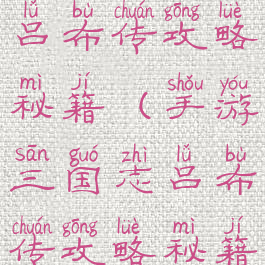 lǚ bù chuán gōng lüè
吕布传攻略
mì jí shǒu yóu
秘籍(手游
sān guó zhì lǚ bù
三国志吕布
chuán gōng lüè mì jí
传攻略秘籍